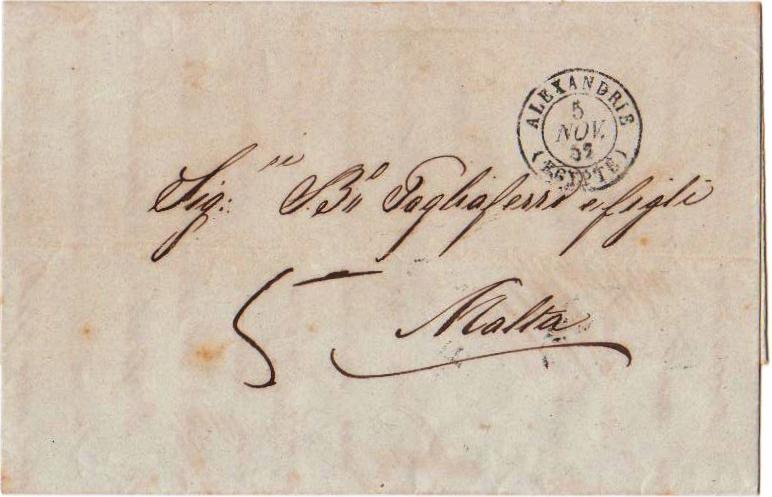 ALEXANDRIE
5
NOV.
52
(EGYPTE)
Sig:ri B.o Tagliaferro e figli
5
Malta